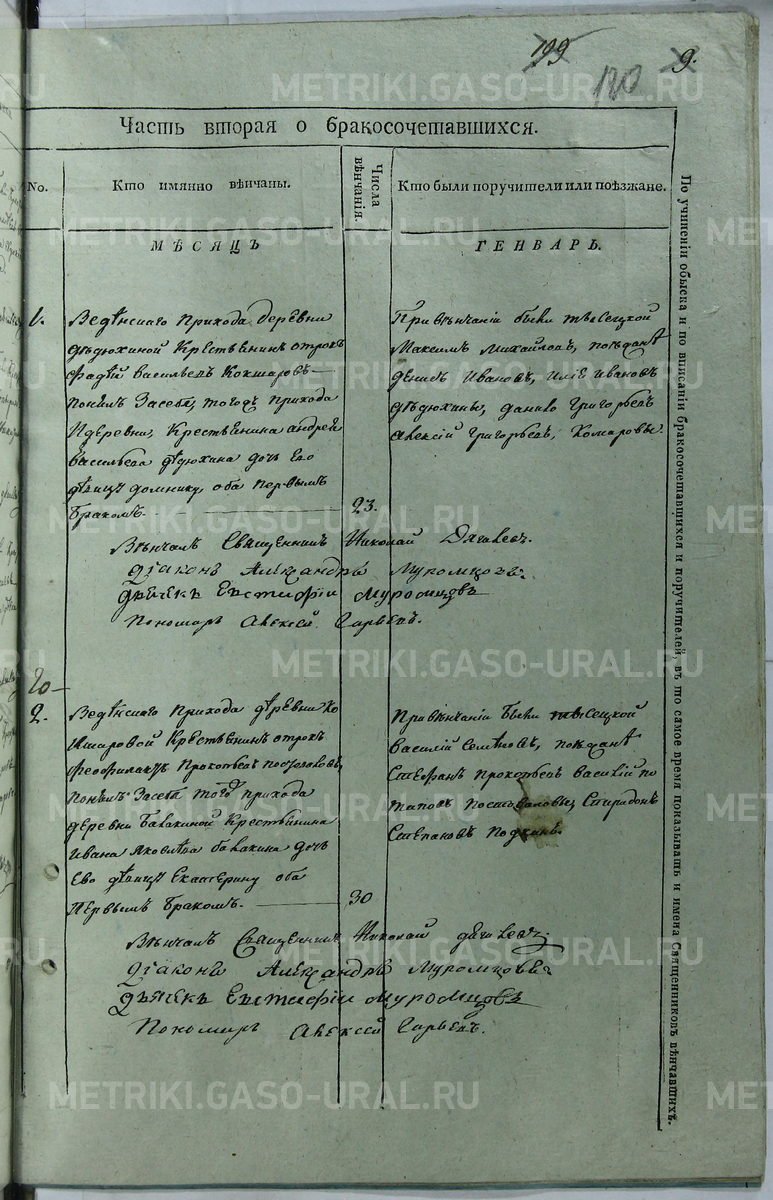 199
120
9.
Часть вторая о бракосочетавшихся.
No.
Кто имянно вѣнчаны.
Числа вѣнчанія.
Кто были поручители или поѣзжане.
МѢСЯЦЪ
ГЕНВАРЬ.
1.
Веденсиаго прихода деревни
дѣдюхиной крестьянинъ отрокъ
Фадѣй Васильевъ Кокшаровъ —
понялъ засебя, тогожъ прихода
идеревни, крестьянина андрея
васильева дѣдюхина дочь ево
дѣвицу домнику, оба первымъ
бракомъ.
23.
При вѣнчаніи были тысецкой
Максимъ Михайловъ, поѣзжанѣ
денисъ Ивановъ, илiя ивановъ
дѣдюхины, данило григорьевъ
алексiй григорьевъ, комаровы.
Вѣнчалъ Священникъ Николай Дягилевъ.
Дiаконъ Александръ Муромцовъ.
Дьячекъ Евстафiй Муромцовъ
Пономарь Алексей Гарьевъ.
20 —
2.
Веденсиаго прихода деревни ко
кшаровой крестьянинъ отрокъ
Феофилактъ Прокопьевъ
понялъ засебя того прихода
деревни балакиной крестьянина
ивана яковлева балакина дочь
ево дѣвицу екатерину оба
первымъ бракомъ.
30
Привѣнчанiи были тысецкой
василiй семеновъ, поѣзжанѣ
стефанъ прокопьевъ василiй по
таповъ постоваловы, спиридонъ
степановъ
Вѣнчалъ Священникъ Николай дягилевъ
Дiаконъ Александръ Муромцовъ
Дьячекъ Евстафiй Муромцовъ
Пономарь Алексей Гарьевъ.
По учиненіи обыска и по вписаніи бракосочетавшихся и поручителей, въ то самое время показывать и имена Священниковъ вѣнчавшихъ.
METRIKI.GASO-URAL.RU